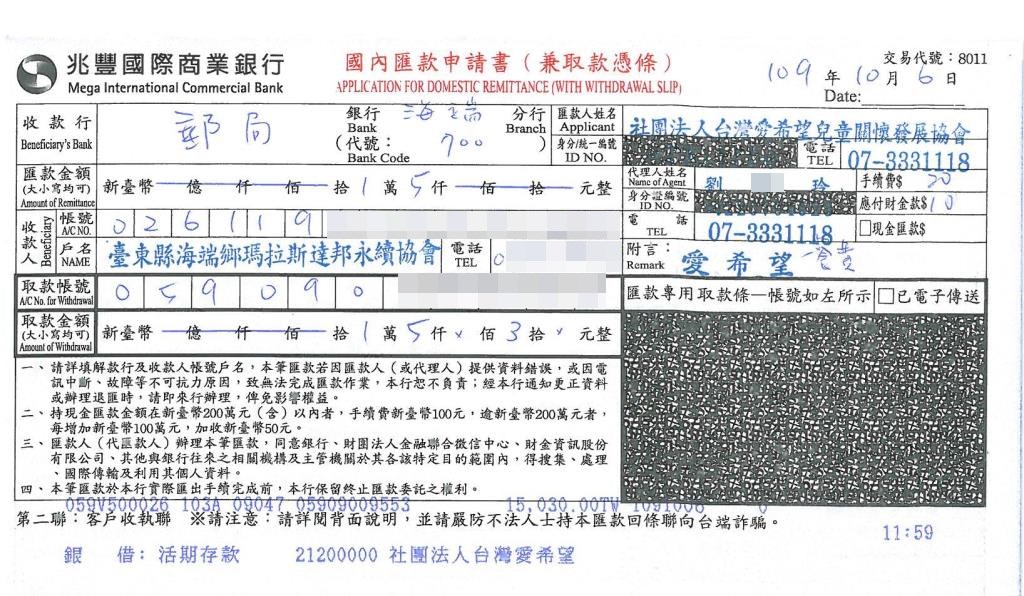 兆豐國際商業銀行
Mega International Commercial Bank
國內匯款申請書(兼取款憑條)
APPLICATION FOR DOMESTIC REMITTANCE (WITH WITHDRAWAL SLIP)
交易代號:8011
109年10月6日
Date:
收款行 郵局 銀行 海端 分行
Beneficiary's Bank Bank Branch
(代號: 700 )
Bank Code
匯款人姓名 社團法人台灣愛希望兒童關懷發展協會
Applicant
身分/統一編號 電話 07-3331118
ID NO. TEL
匯款金額 新臺幣 億 仟 佰 拾 1 萬 5 仟 佰 拾 元整
(大小寫均可)
Amount of Remittance
代理人姓名 劉 玲 手續費$ 20
Name of Agent
身分證編號 應付財金款$ 10
ID NO.
收款人 Beneficiary
帳號 026119
A/C NO.
電話 07-3331118 □現金匯款$
TEL
戶名 臺東縣海端鄉瑪拉斯達邦永續協會 電話 0
NAME TEL
附言: 愛希望
Remark
取款帳號 059090
A/C No. for Withdrawal
匯款專用取款條—帳號如左所示 □已電子傳送
取款金額 新臺幣 億 仟 佰 拾 1 萬 5 仟 × 佰 3 拾 × 元整
(大小寫均可)
Amount of Withdrawal
一、請詳填解款行及收款人帳號戶名,本筆匯款若因匯款人(或代理人)提供資料錯誤,或因電
訊中斷、故障等不可抗力原因,致無法完成匯款作業,本行恕不負責;經本行通知更正資料
或辦理退匯時,請即來行辦理,俾免影響權益。
二、持現金匯款金額在新臺幣200萬元(含)以內者,手續費新臺幣100元,逾新臺幣200萬元者,
每增加新臺幣100萬元,加收新臺幣50元。
三、匯款人(代匯款人)辦理本筆匯款,同意銀行、財團法人金融聯合徵信中心、財金資訊股份
有限公司、其他與銀行往來之相關機構及主管機關於其各該特定目的範圍內,得搜集、處理
、國際傳輸及利用其個人資料。
四、本筆匯款於本行實際匯出手續完成前,本行保留終止匯款委託之權利。
059V500026 103A 09047 05909009553 15,030.00TW 1091006 0
第二聯:客戶收執聯 ※請注意:請詳閱背面說明,並請嚴防不法人士持本匯款回條聯向台端詐騙。
11:59
銀 借:活期存款 21200000 社團法人台灣愛希望